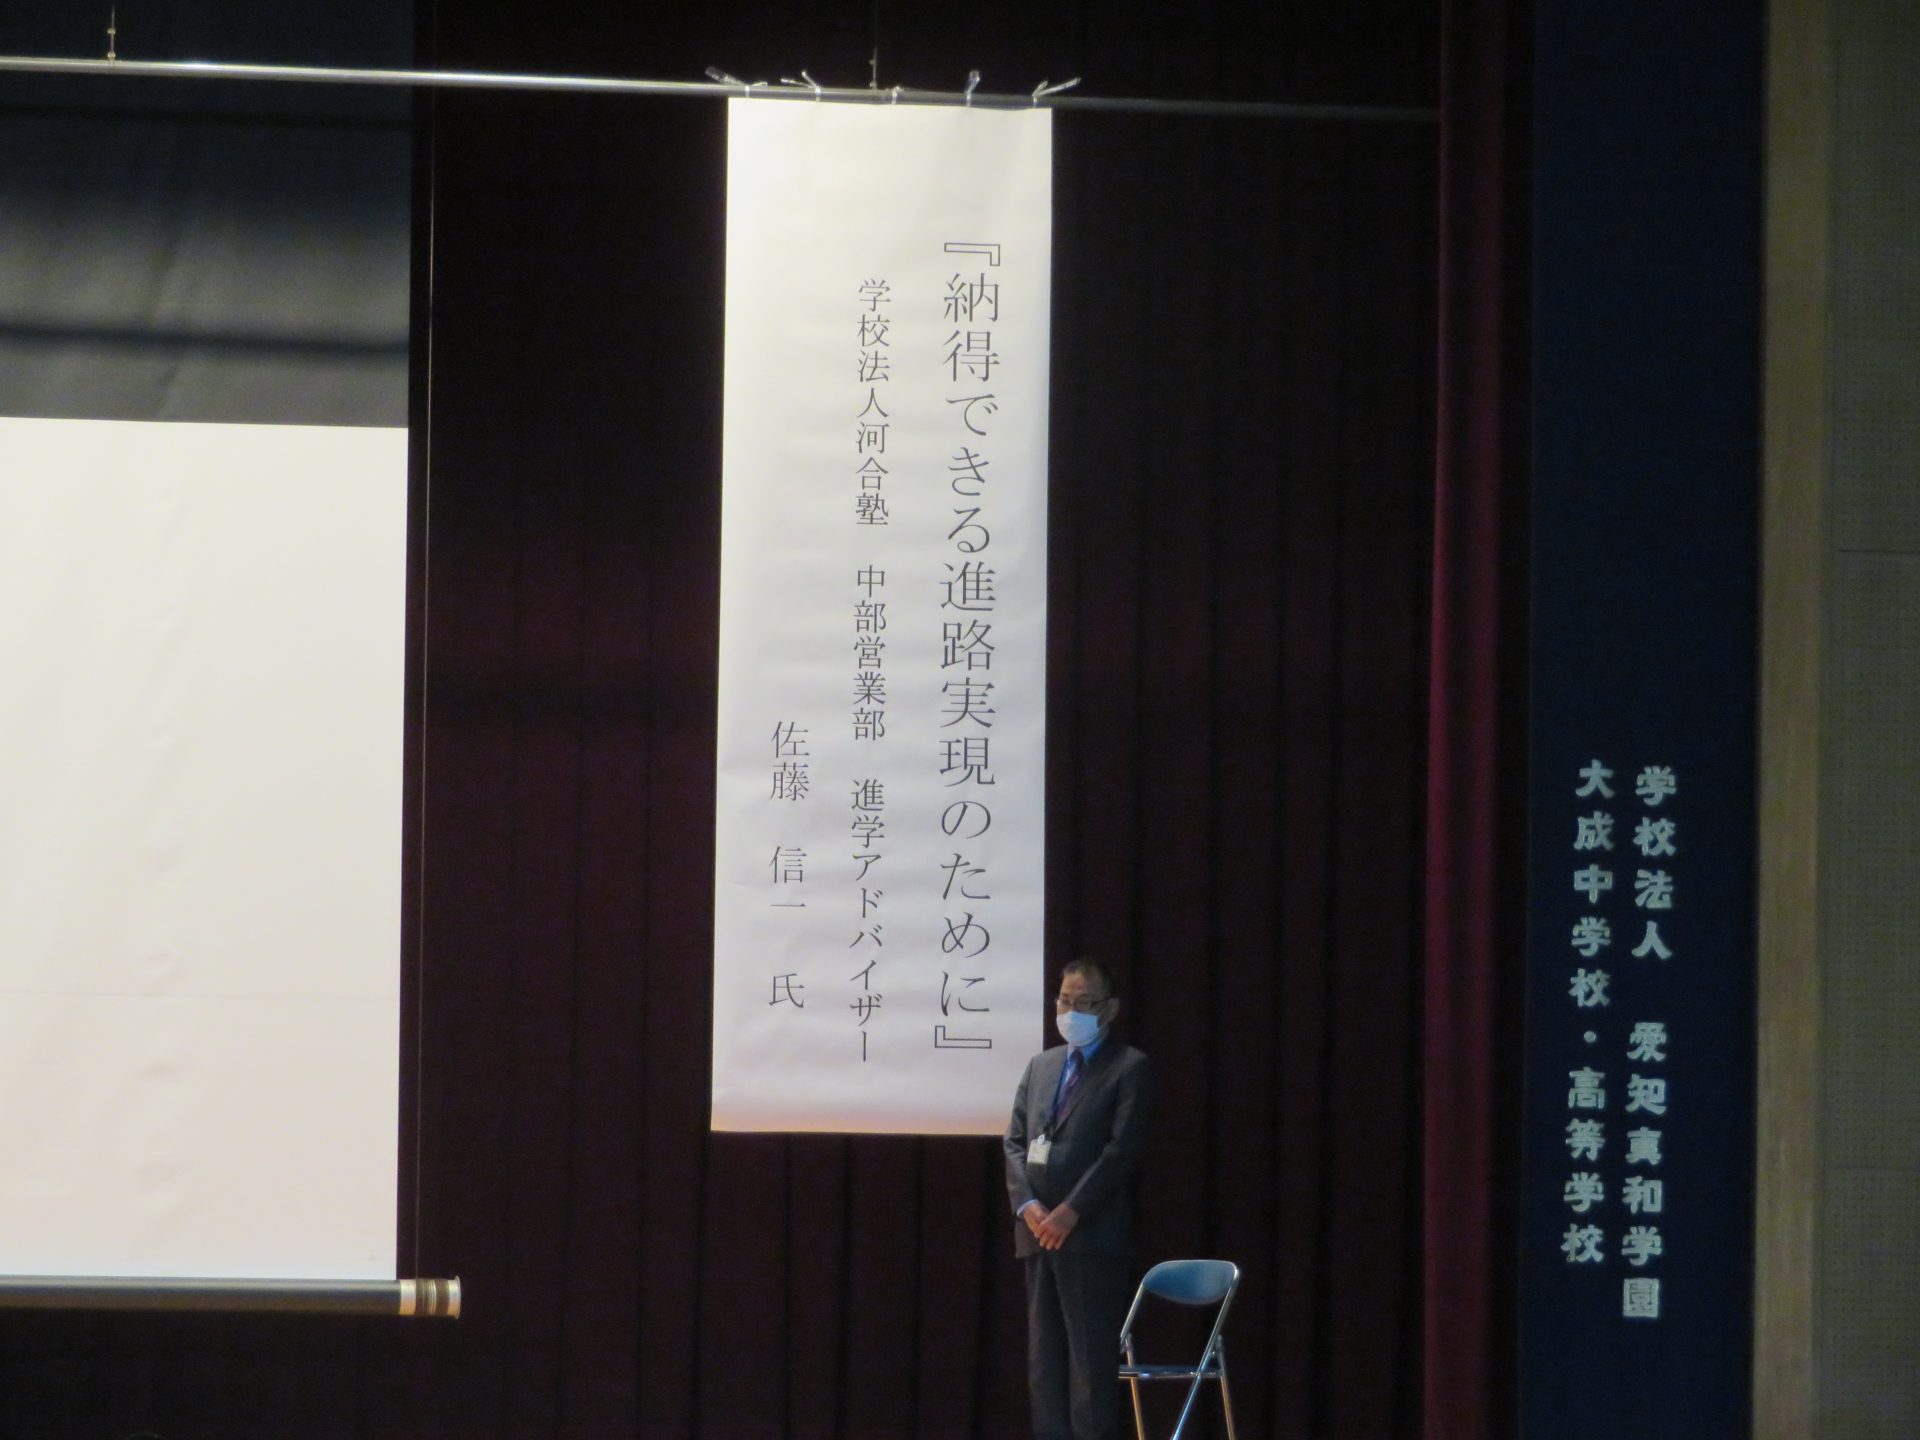 『納得できる進路実現のために』
学校法人河合塾　中部営業部　進学アドバイザー
佐藤　信一　氏
学校法人　愛知真和学園
大成中学校・高等学校